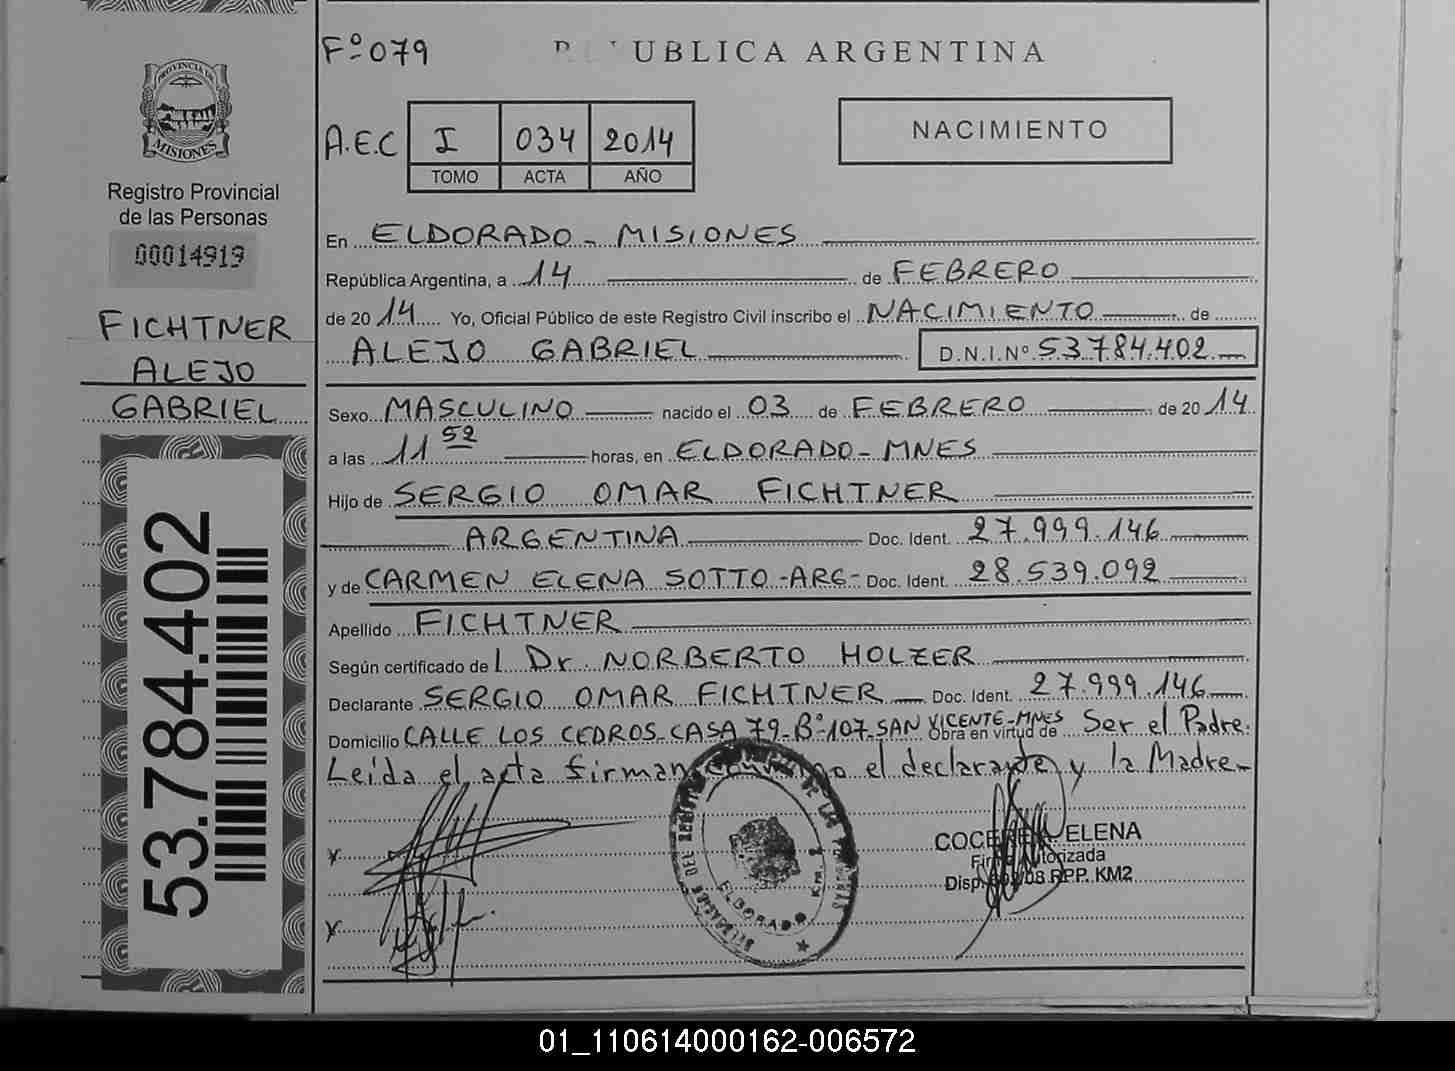 PROVINCIA DE
MISIONES
Registro Provincial
de las Personas
00014919
FICHTNER
ALEJO
GABRIEL
53.784.402
Fº 079
UBLICA ARGENTINA
A.E.C I 034 2014
TOMO ACTA AÑO
NACIMIENTO
En ELDORADO - MISIONES
República Argentina, a 14 de FEBRERO
de 2014 Yo, Oficial Público de este Registro Civil inscribo el NACIMIENTO de
ALEJO GABRIEL D.N.I.Nº 53.784.402
Sexo MASCULINO nacido el 03 de FEBRERO de 2014
a las 11 52 horas, en ELDORADO - MNES
Hijo de SERGIO OMAR FICHTNER
ARGENTINA Doc. Ident. 27.999.146
y de CARMEN ELENA SOTTO -ARG- Doc. Ident. 28.539.092
Apellido FICHTNER
Según certificado de Dr. NORBERTO HOLZER
Declarante SERGIO OMAR FICHTNER Doc. Ident. 27.999.146
Domicilio CALLE LOS CEDROS CASA 79 - Bº 107 SAN VICENTE - MNES Obra en virtud de Ser el Padre.
Leída el acta firman el declarante y la Madre -
ELDORADO Km. 2
ELENA
Firma Autorizada
Disp. RPP. KM2
01_110614000162-006572